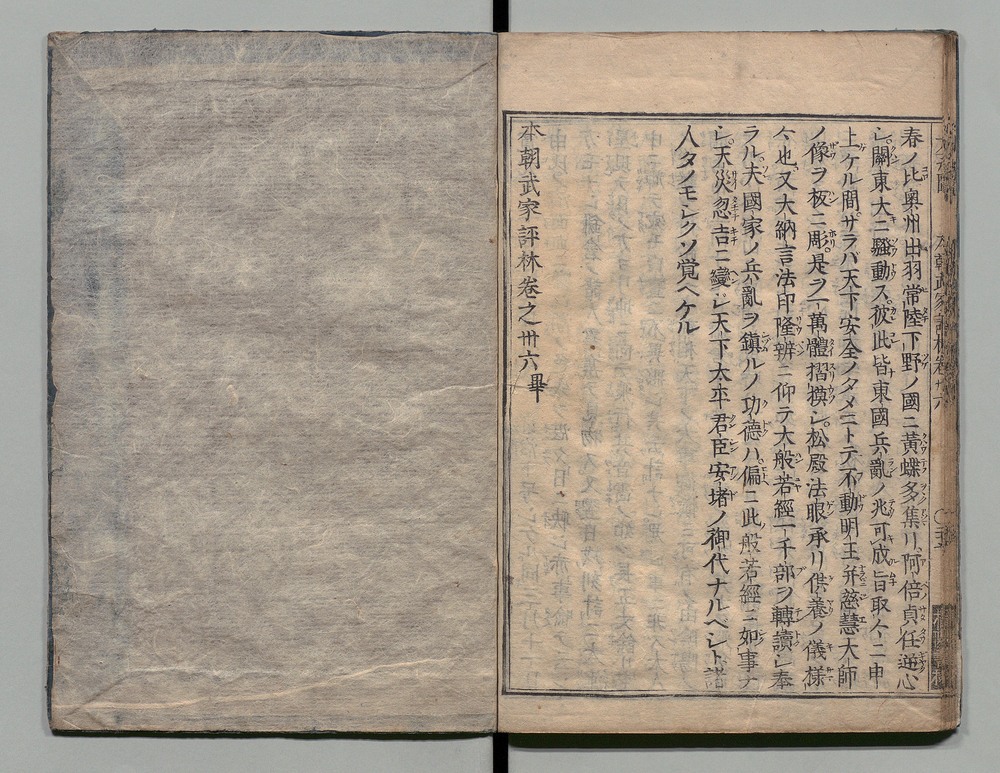 春ノ比奥州出羽常陸下野ノ國ニ黄蝶多集リ阿倍貞任逆心
シ關東大ニ騒動ス彼此皆東國兵亂ノ兆可成旨取〻ニ申
上ケル間サラバ天下安全ノタメニトテ不動明王并慈慧大師
ノ像ヲ板ニ彫是ヲ一萬體摺摸シ松殿法眼承リ供養ノ儀様
〻也又大納言法印隆辨ニ仰テ大般若經一千部ヲ轉讀シ奉
ラル夫國家ノ兵亂ヲ鎮ルノ功德ハ偏ニ此般若經ニ如事ナ
シ天災忽吉ニ變シ天下太平君臣安堵ノ御代ナルベシト諸
人タノモシクソ覚ヘケル
本朝武家評林卷之卅六畢